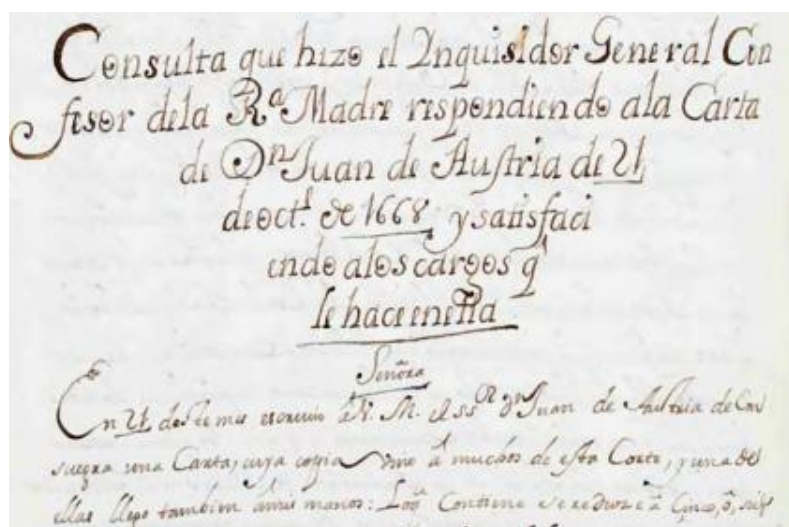 Consulta que hizo el Inquisidor General Con
fesor dela Rª Madre respondiendo ala Carta
de Dn Juan de Austria de 21
de oct.e de 1668 y satisfaci
endo alos cargos q
le hace en ella
Señora
En 21 deste mes escriuio a V. M. el Sr Dn Juan de Austria de Con
suegra una Carta, cuya copia vino a muchos de esta Corte, y una de
ellas llego tambien a mis manos: Loq Contiene se reduze a Cinco, o, seis